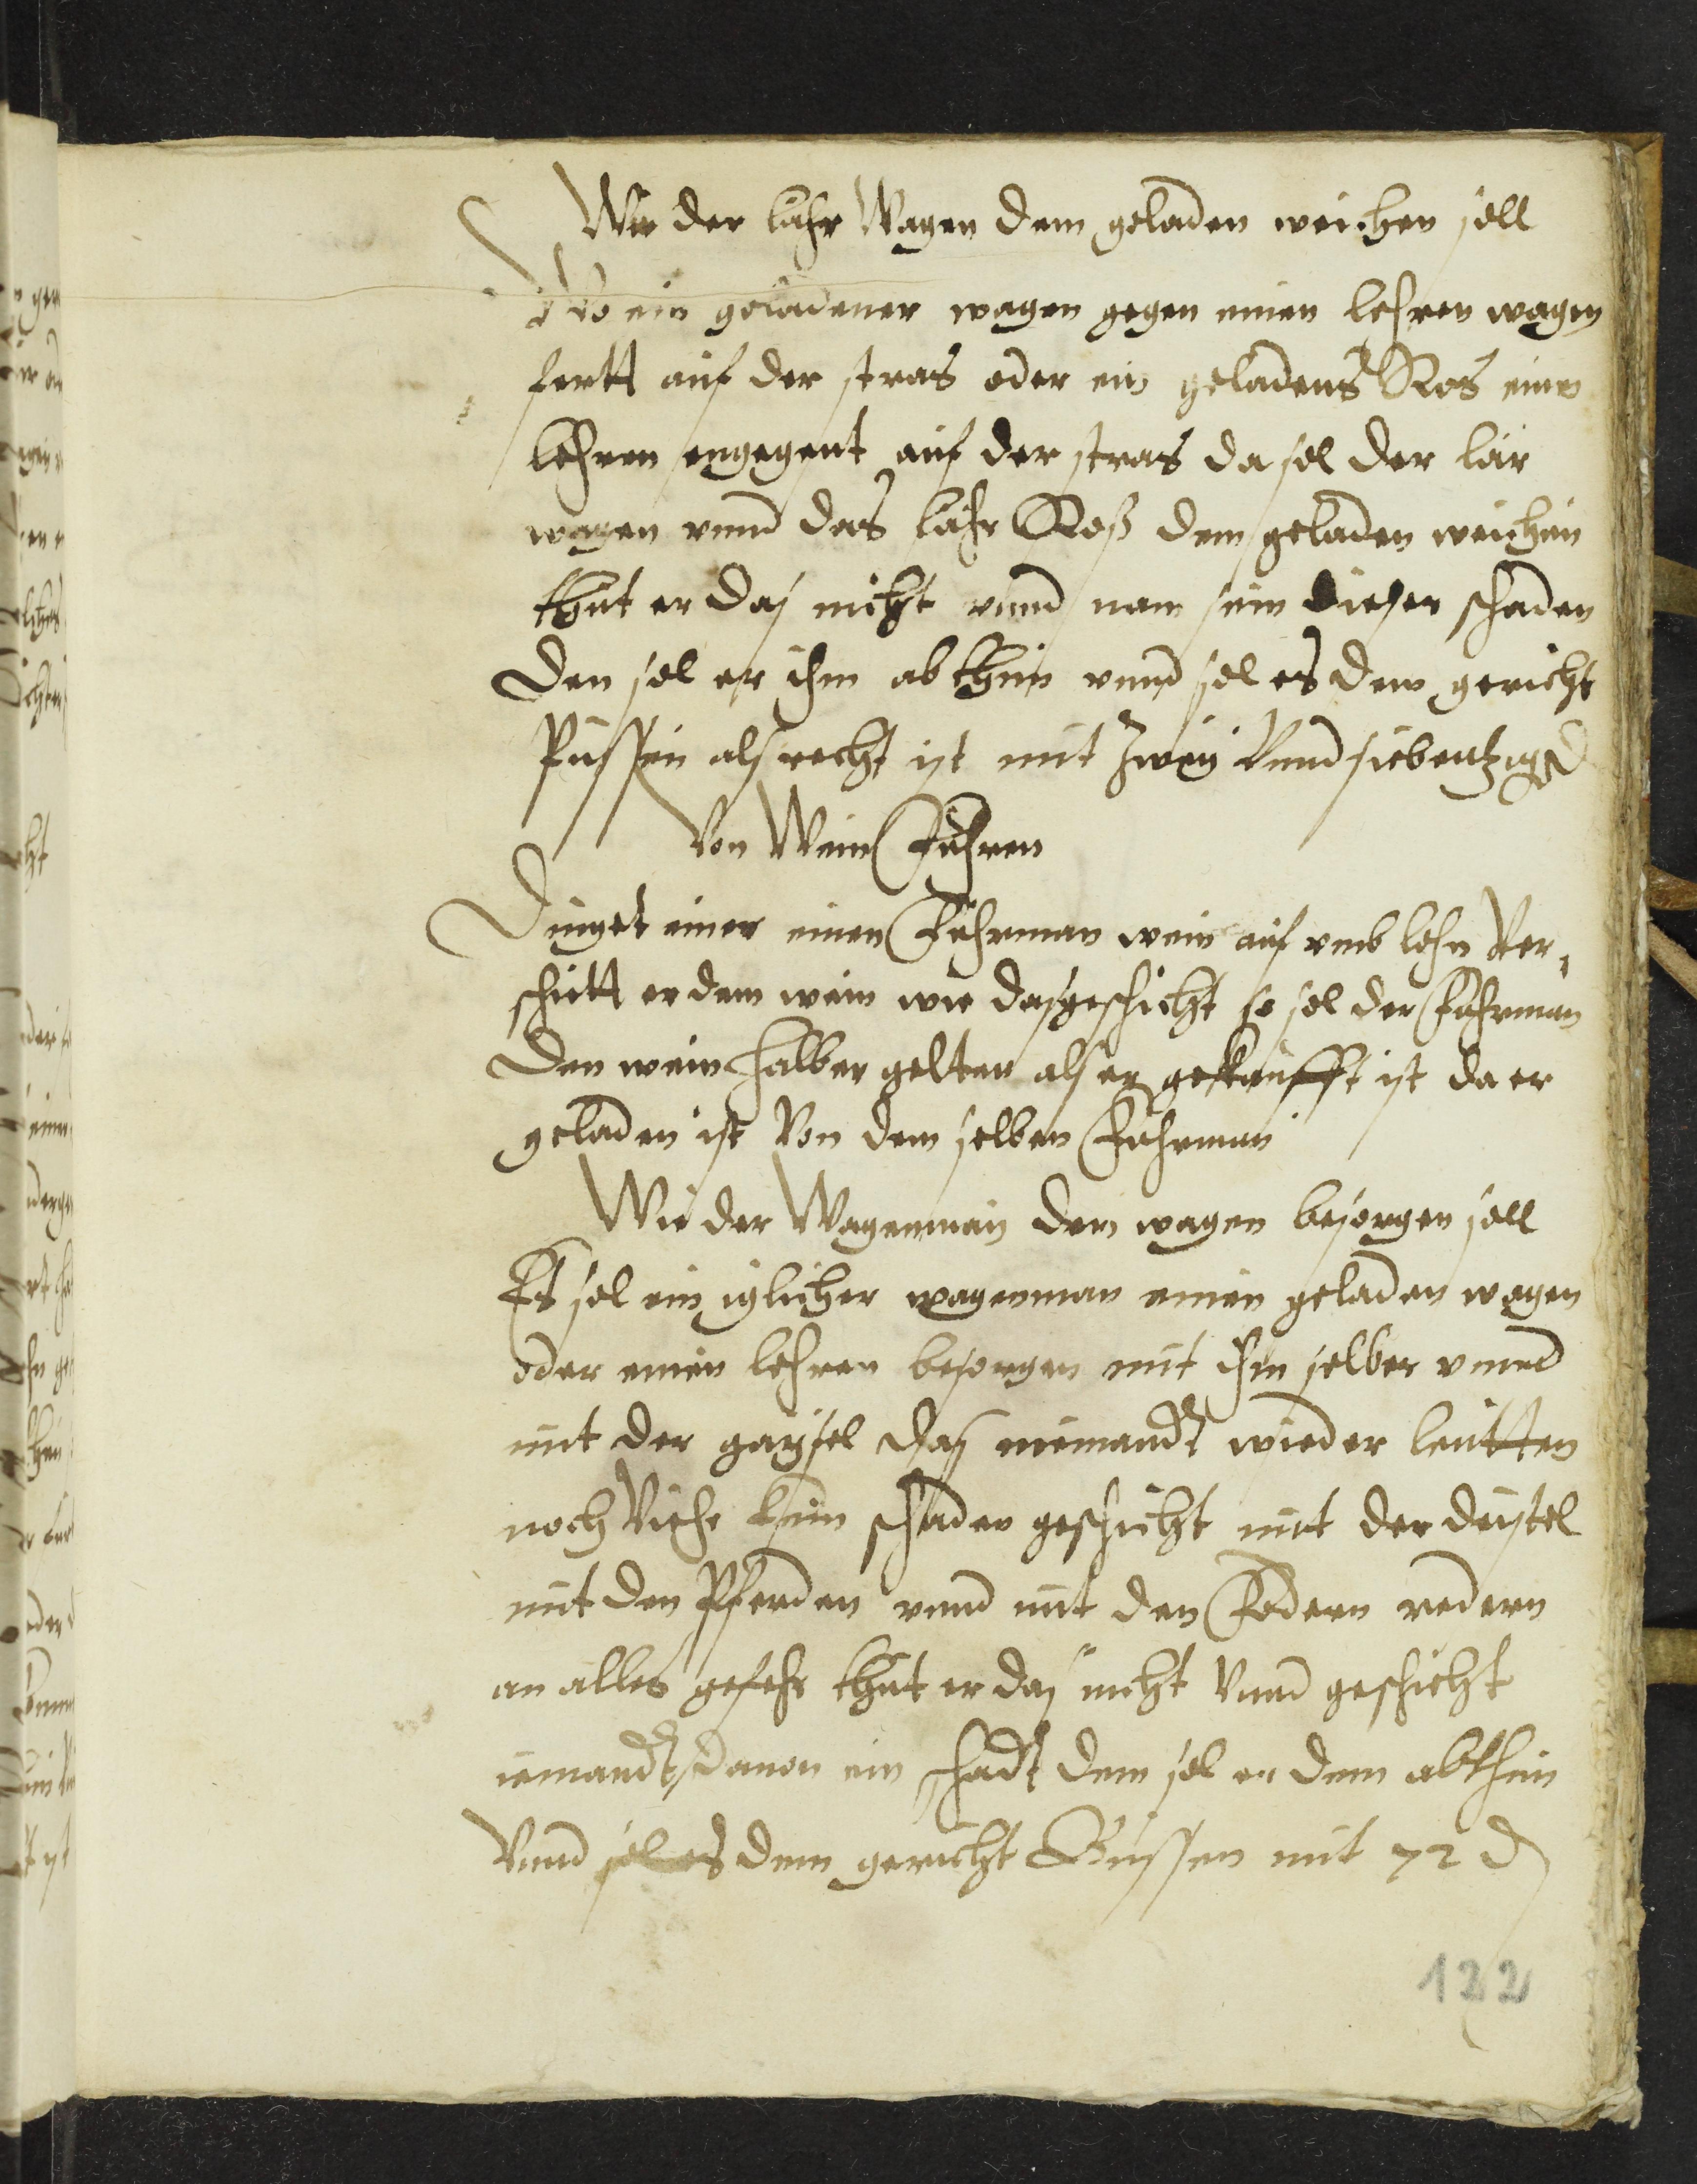 Wie der lähr Wagen dem geladen weichen soll
Wo ein geladener wagen gegen einen lehren wagen
fertt auf der stras oder ein geladens Ros einen
lehren engegent auf der stras da sol der lär
wagen vnnd das lähr Roß dem geladen weichen
thut er das nicht vnnd nam sein dieser schaden
den sol er ihm abthun vnnd sol es dem gericht
Püssen als recht ist mit zwey Vnnd siebentzig d
Von Wein Führen
Dinget einer einen Fuhrman wein auf vmb lohn Ver,
schütt er dem wein wie das geschicht so sol der Fuhrman
den wein halber gelten als er gekaufft ist da er
geladen ist Von dem selben Fuhrman
Wie der Wagenman den wagen besorgen soll
Es sol ein iglicher wagenman einen geladen wagen
oder einen lehren besorgen mit ihm selber vnnd
mit der gaysel das niemandt wieder leutten
noch Viehe kein schaden geschicht mit der deystel
mit den Pferden vnnd mit den Fodern redern
an alles gefehr thut er das nicht Vnnd geschicht
iemandt dauon ein schadt dem sol er dem abthun
Vnnd sol es dem gericht Büssen mit 72 d
122